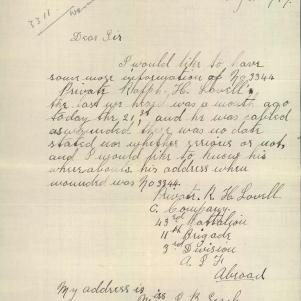 3311
Dear Sir
I would like to have
some more information of No 3344
Private Ralph. H. Lovell.
the last we heard was a month ago
today the 21st and he was cabled
as wounded there was no date
stated nor whether serious or not,
and I would like to know his
whereabouts his address when
wounded was No 3344.
Private. R. H. Lovell
C. Company.
43rd Battalion
11th Brigade
3rd Division
A. I. F
Abroad
My address is
Miss R. K.